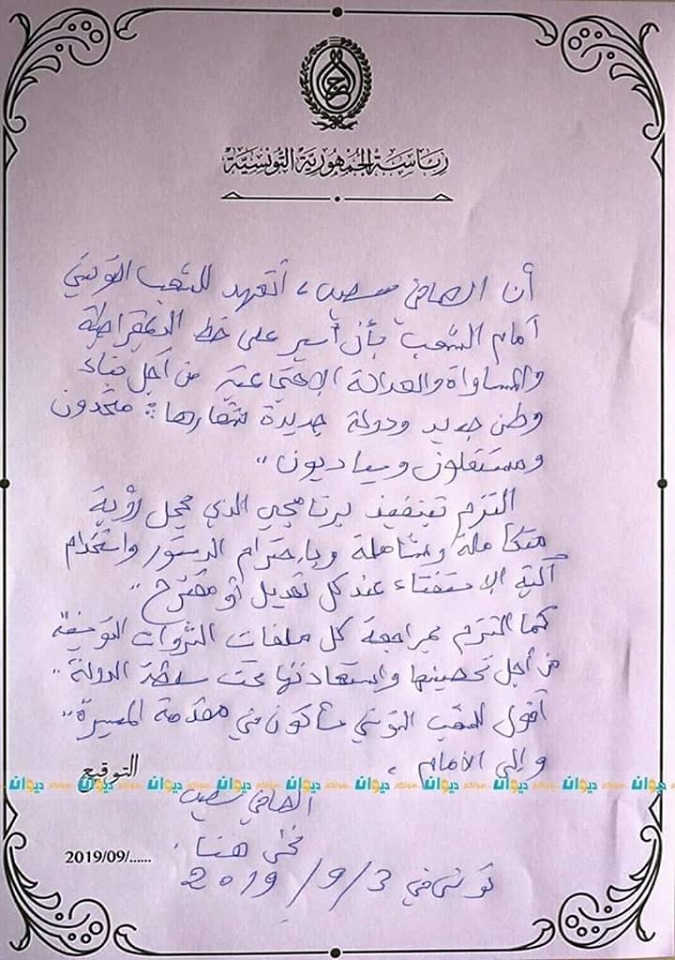 رئاسة الجمهورية التونسية
أن الصافي سعيد، أتعهد للشعب التونسي
أمام الشعب بأن أسير على خط الديمقراطية
والمساواة والعدالة الإجتماعية من أجل بناء
وطن جديد ودولة جديدة شعارها: متحدون
ومستقلون وسياديون..
التزم بتنفيذ برنامجي الذي يحمل رؤية
متكاملة وشاملة وبإحترام الدستور واستخدام
آلية الإستفتاء عند كل تعديل أو مقترح..
كما التزم بمراجعة كل ملفات الثروات التونسية
من أجل تحصينها واستعادتها تحت سلطة الدولة..
أقول للشعب التونسي سأكون في مقدمة المسيرة..
وإلى الأمام.
التوقيع
ديوان
الصافي سعيد
نحن هنا.
2019/09/......
تونس في 3/9/2019